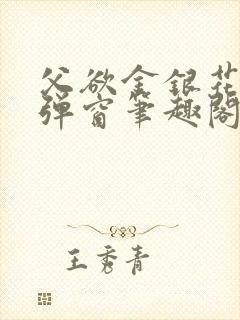 父欲金银花
弹窗笔趣阁
王秀青